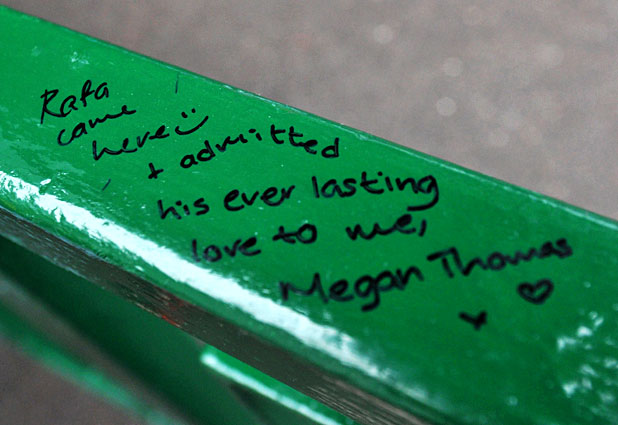 Rafa
came
here :)
+ admitted
his ever lasting
love to me,
Megan Thomas
x ♡